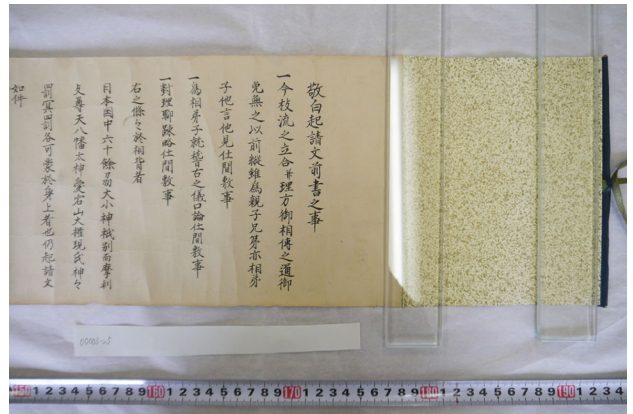 敬白起請文前書之事
一今枝流之立合并理方御相傳之通御
免無之以前縦雖為親子兄弟亦相弟
子他言他見仕間敷事
一為相弟子就稽古之儀口論仕間敷事
一對理聊踈略仕間敷事
右之條々於相背者
日本国中六十餘易大小神祇別而摩利
支尊天八幡太神愛宕山大権現氏神々
罰冥罰各可蒙於身上者也仍起請文
如件
00003-25
150 1 2 3 4 5 6 7 8 9 160 1 2 3 4 5 6 7 8 9 170 1 2 3 4 5 6 7 8 9 180 1 2 3 4 5 6 7 8 9 190 1 2 3 4